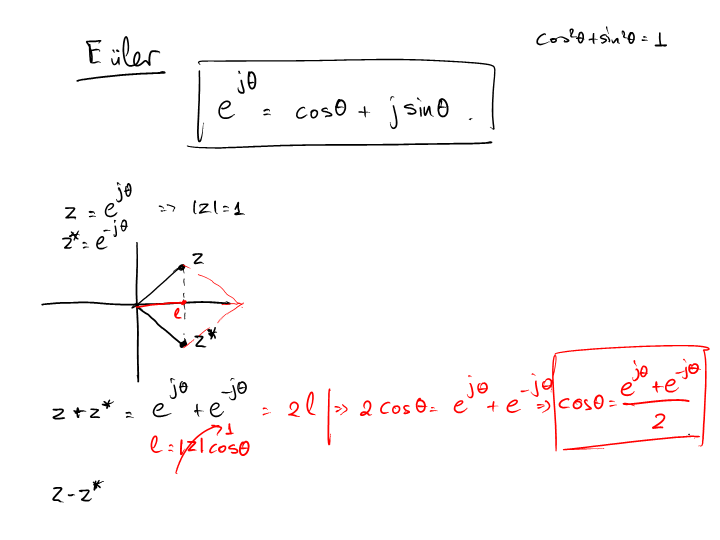 Eüler
cos²θ+sin²θ=1
e^jθ = cosθ + j sinθ.
z = e^jθ => |z|=1
z* = e^-jθ
z
l
z*
z+z* = e^jθ + e^-jθ = 2l | => 2cosθ = e^jθ + e^-jθ => cosθ = (e^jθ + e^-jθ)/2
l = |z| cosθ
1
z-z*